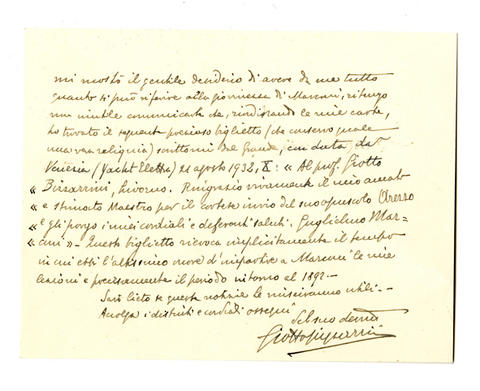 mi mostrò il gentile desiderio di avere da me tutto
quanto si può riferire alla giovinezza di Marconi, ritengo
non inutile comunicarle che, riordinando le mie carte,
ho trovato il seguente prezioso biglietto (che conservo quale
una vera reliquia) scrittomi dal Grande, in data, da
Venezia (Yacht Elettra) 21 agosto 1932, X: « Al prof. Giotto
« Bizzarrini, Livorno. Ringrazio vivamente il mio amato
« e stimato Maestro per il cortese invio del suo opuscolo Arezzo
« e gli porgo i miei cordiali e deferenti saluti. Guglielmo Mar-
« coni » - Questo biglietto rievoca implicitamente il tempo
in cui ebbi l'altissimo onore d'impartire a Marconi le mie
lezioni e precisamente il periodo intorno al 1892. -
Sarò lieto se queste notizie le riusciranno utili. -
Accolga i distinti e cordiali ossequi
del suo dev.mo
Giotto Bizzarrini